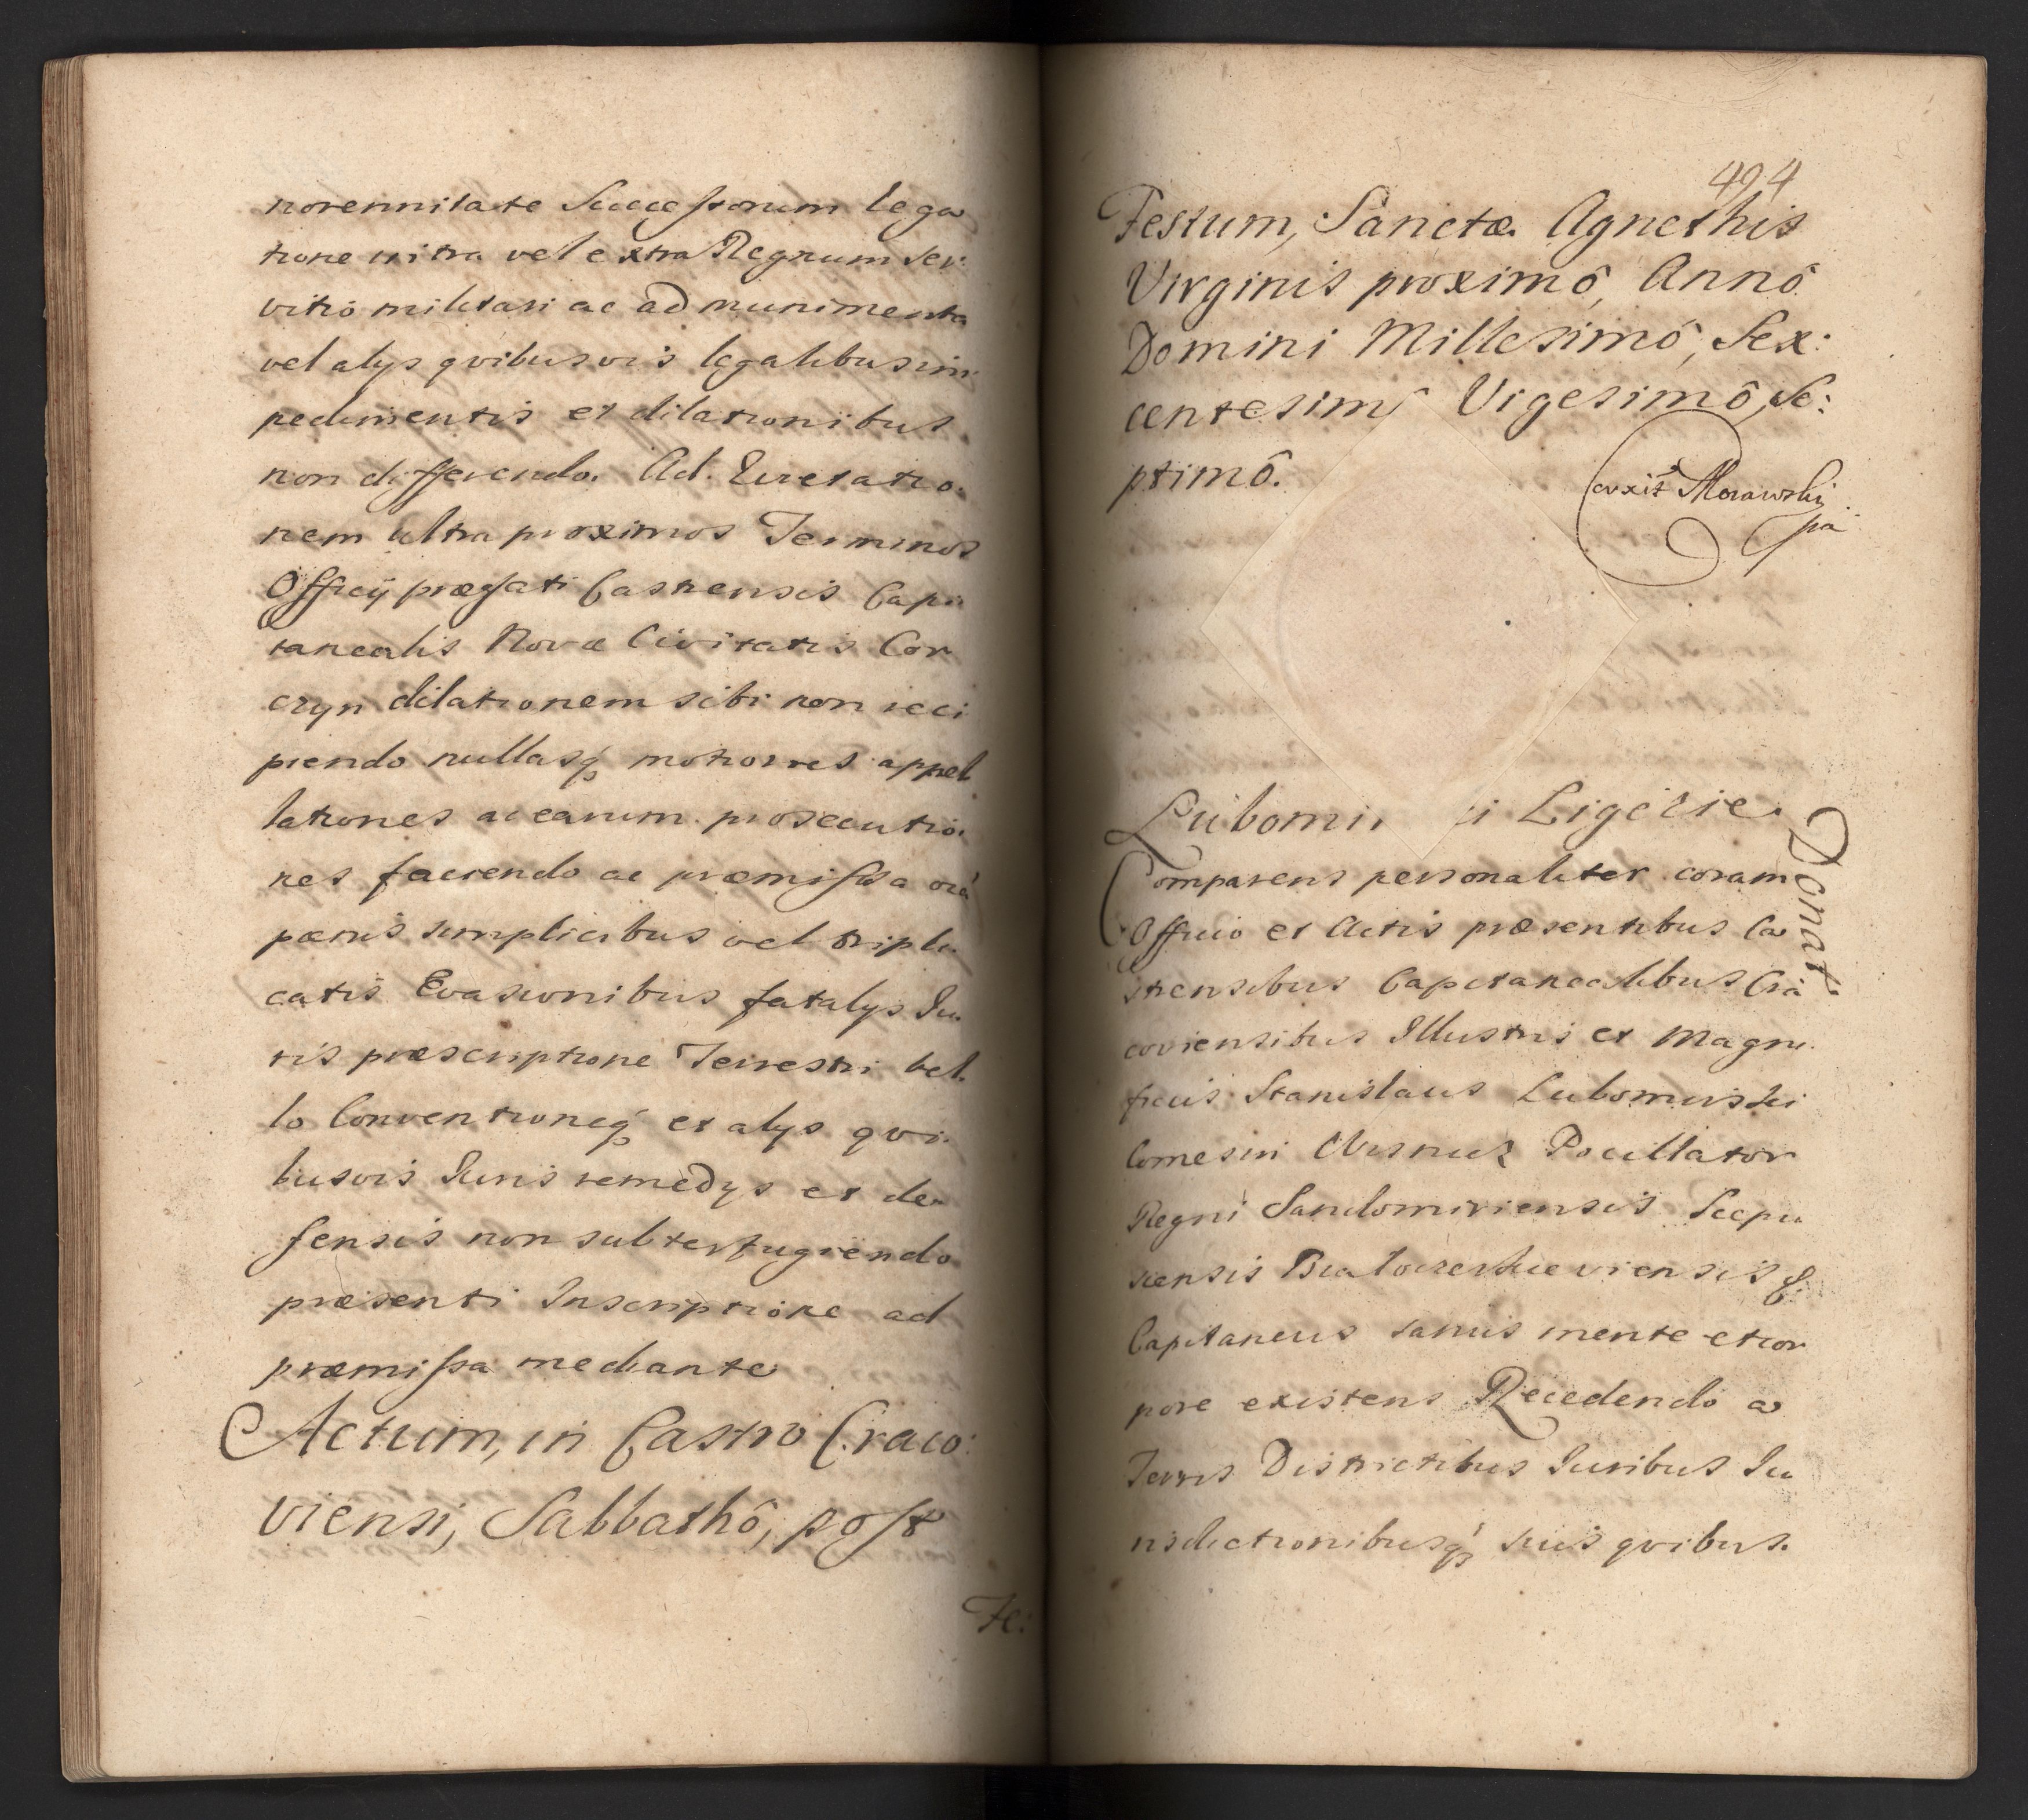 norennitate Successorum lega
tione intra vel extra Regnum ser:
vitio militari ac ad munimenta
vel alys qvibusvis legalibus im
pedimentis et dilationibus
non differendo. Ad
nem ultra proximos Terminos
Officÿ præfati Castrensis Capi
tanealis Novæ Civitatis Cor
czyn dilationem sibi non reci
piendo nullasq́ motiones appel
lationes ac earum prosecutio
nes faciendo ac præmissa oiá
pœnis simplicibus vel tripli
catis Evasionibus fatalys Iu
ris præscriptione Terrestri bel
lo Conventioneq́ et alys qvi
busvis Iuris remedys et de
fensis non subterfugiendo
præsenti Inscriptione ad
præmissa mediante
Actum, in Castro Craco:
viensi, Sabbathô, post
Fe:
494
Festum, Sanctæ Agnethis
Virginis proximô, Annô
Domini Millesimô, Sex:
centesimô Vigesimô, Se:
ptimô.
Morawski
Lubomir i Ligęzie
Donat.
Comparens personaliter coram
Officio et Actis præsentibus Ca
strensibus Capitanealibus Cra
coviensibus Illustris et Magni
ficus Stanislaus Lubomirski
Comes in Wisnicz Pocillator
Regni Sandomiriensis Scepu
siensis &
Capitaneus sanus mente et cor
pore existens Recedendo a
Terris Districtibus Iuribus Iu
risdictionibusq́ suis qvibus